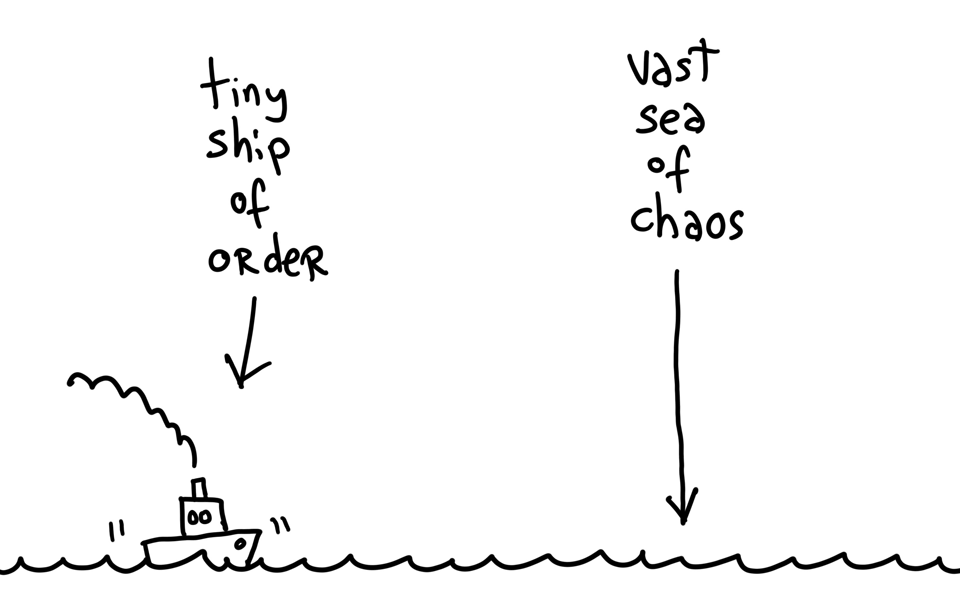 tiny
ship
of
order
vast
sea
of
chaos